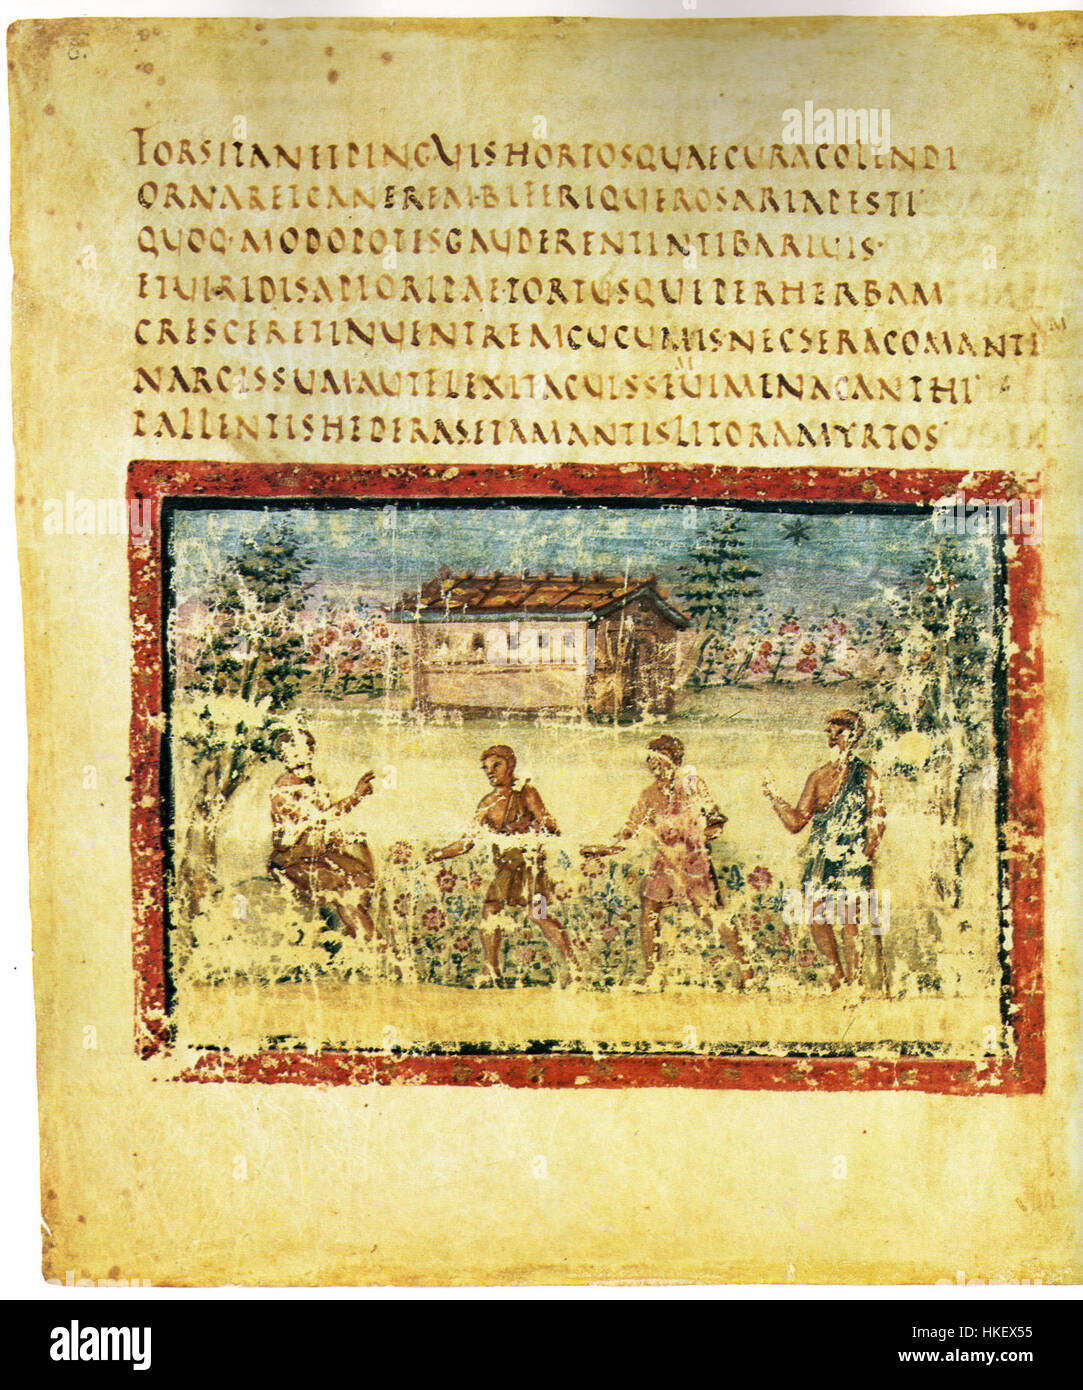 FORSITANETPINGUISHORTOSQUAECURACOLENDI
ORNARETCANEREM·BIFERIQUEROSARIAPESTI
QUOQ·MODOPOTISGAUDERENTINTIBARIUIS·
ETUIRIDISAPIORIPAE·TORTUSQUEPERHERBAM
CRESCERETINUENTREMCUCUMISNECSERACOMANTEM
NARCISSUMAUTFLEXITACUISSEMUIMENACANTHI
PALLENTISHEDERASETAMANTISLITORAMYRTOS
alamy
Image ID: HKEX55
www.alamy.com